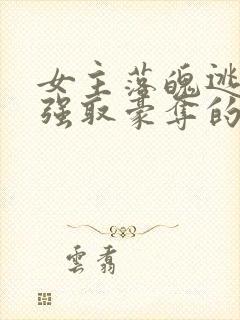 女主落魄逃
强取豪夺的
雲翥